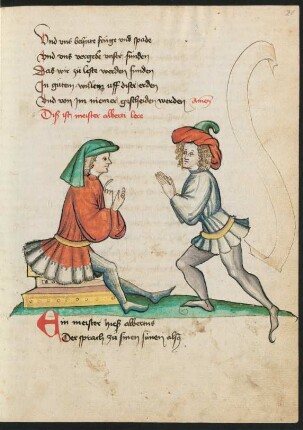 Vnd vns behüte frúge vnd spade
Vnd vns vergebe vnser sunden
Das wir zu leste werden funden
In guten willen uff diser erden
Vnd von im niemer gescheiden werden amen
Diß ist meister alberti lere
Ein meister hieß albertus
Der sprach zu sinen sünen alsus